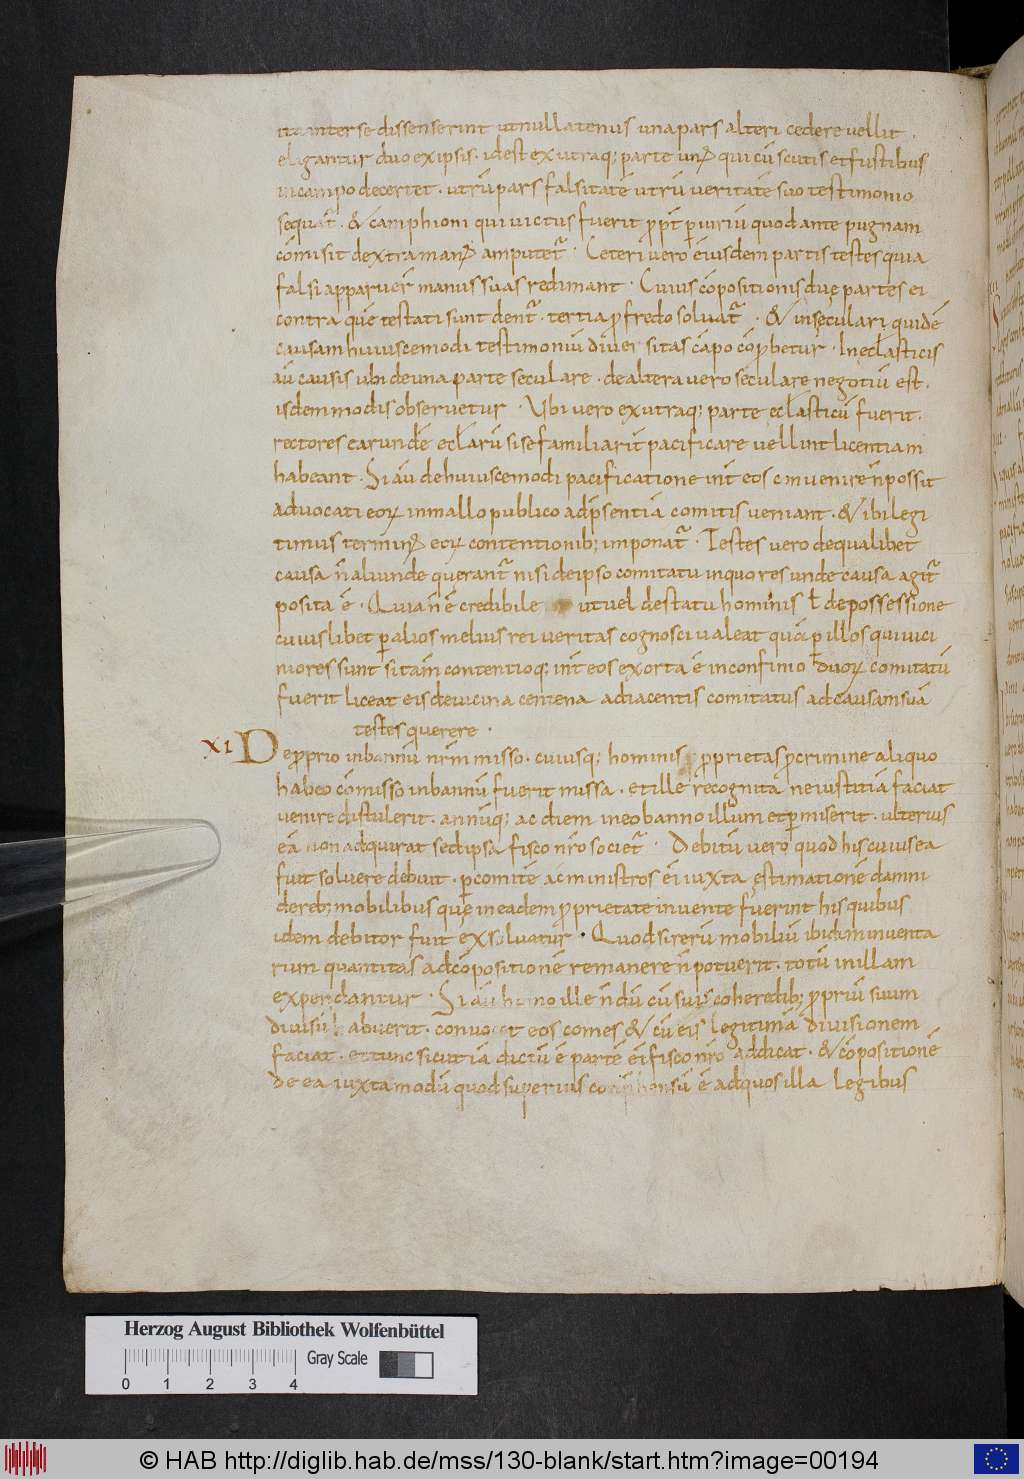 ita inter se dissenserint ut nullatenus una pars alteri cedere vellit.
eligantur duo ex ipsis. id est ex utraq; parte un᷒ qui cū scutis et fustibus
in campo decertet. utrū pars falsitatē utrū veritatē suo testimonio
sequat᷑. & camphioni qui victus fuerit ꝓpt̄ ꝑiuriū quod ante pugnam
cōmisit dextra man᷒ amputet᷑. Ceteri vero eiusdem partis testes quia
falsi apparuer̄ manus suas redimant. Cuius cōpositionis duę partes ei
contra quē testati sunt dent᷑. tertia ꝓ fredo solvat᷑. & in sęculari quidē
causam huiuscemodi testimoniū diversitas cāpo cōꝓbetur. In ecl̄asticis
aū causis ubi de una parte seculare. de altera vero sęculare negotiū est.
isdem modis observetur. Ubi vero ex utraq; parte ecl̄asticū fuerit.
rectores earundē ecl̄arū si se familiarit̄ pacificare vellint licentiam
habeant. Si aū de huiuscemodi pacificatione int̄ eos convenire n̄ possit
advocati eoꝝ in mallo publico ad p̄sentiā comitis veniant. & ibi legi
timus termin᷒ eoꝝ contentionib; imponat᷑. Testes vero de qualibet
causa n̄ aliunde querant᷑ nisi de ipso comitatu in quo res unde causa agit᷑
posita ē. Quia n̄ ē credibile ut vel de statu hominis ł de possessione
cuiuslibet ꝑ alios melius rei veritas cognosci valeat quā ꝑ illos qui vici
niores sunt si tam̄ contentioq; int̄ eos exorta ē in confinio duoꝝ comitatū
fuerit liceat eis de vicina centena adiacentis comitatus ad causam suā
testes querere.
XI De ꝓprio in bannū nr̄m misso. cuiusq; hominis ꝓprietas ꝓ crimine aliquo
habeo cōmisso in bannū fuerit missa. et ille recognita ne iustitiā faciat
venire distulerit. annūq; ac diem in eo banno illum et ꝑmiserit. ulterius
eā non adquirat sed ipsa fisco nr̄o societ᷑. Debitū vero quod his cuius ea
fuit solvere debuit. ꝑ comitē ac ministros ei iuxta ęstimationē damni
de reb; mobilibus quę in eadem ꝓprietate invente fuerint his quibus
idem debitor fuit exsolvatur. Quod si rerū mobiliū ibidem inventa
rum quantitas ad cōpositionē remanere n̄ potuerit. totū in illam
expendantur. Si aū homo ille n̄dū cū suis coheredib; ꝓpriū suum
divisū habuerit. convocet eos comes & cū eis legitimā divisionem
faciat. et tunc sicut iā dictū ē partē ei fisco nr̄o addicat. & cōpositionē
de ea iuxta modū quod superius ē ad quos illa legibus
Herzog August Bibliothek Wolfenbüttel
Gray Scale
0 1 2 3 4
© HAB http://diglib.hab.de/mss/130-blank/start.htm?image=00194